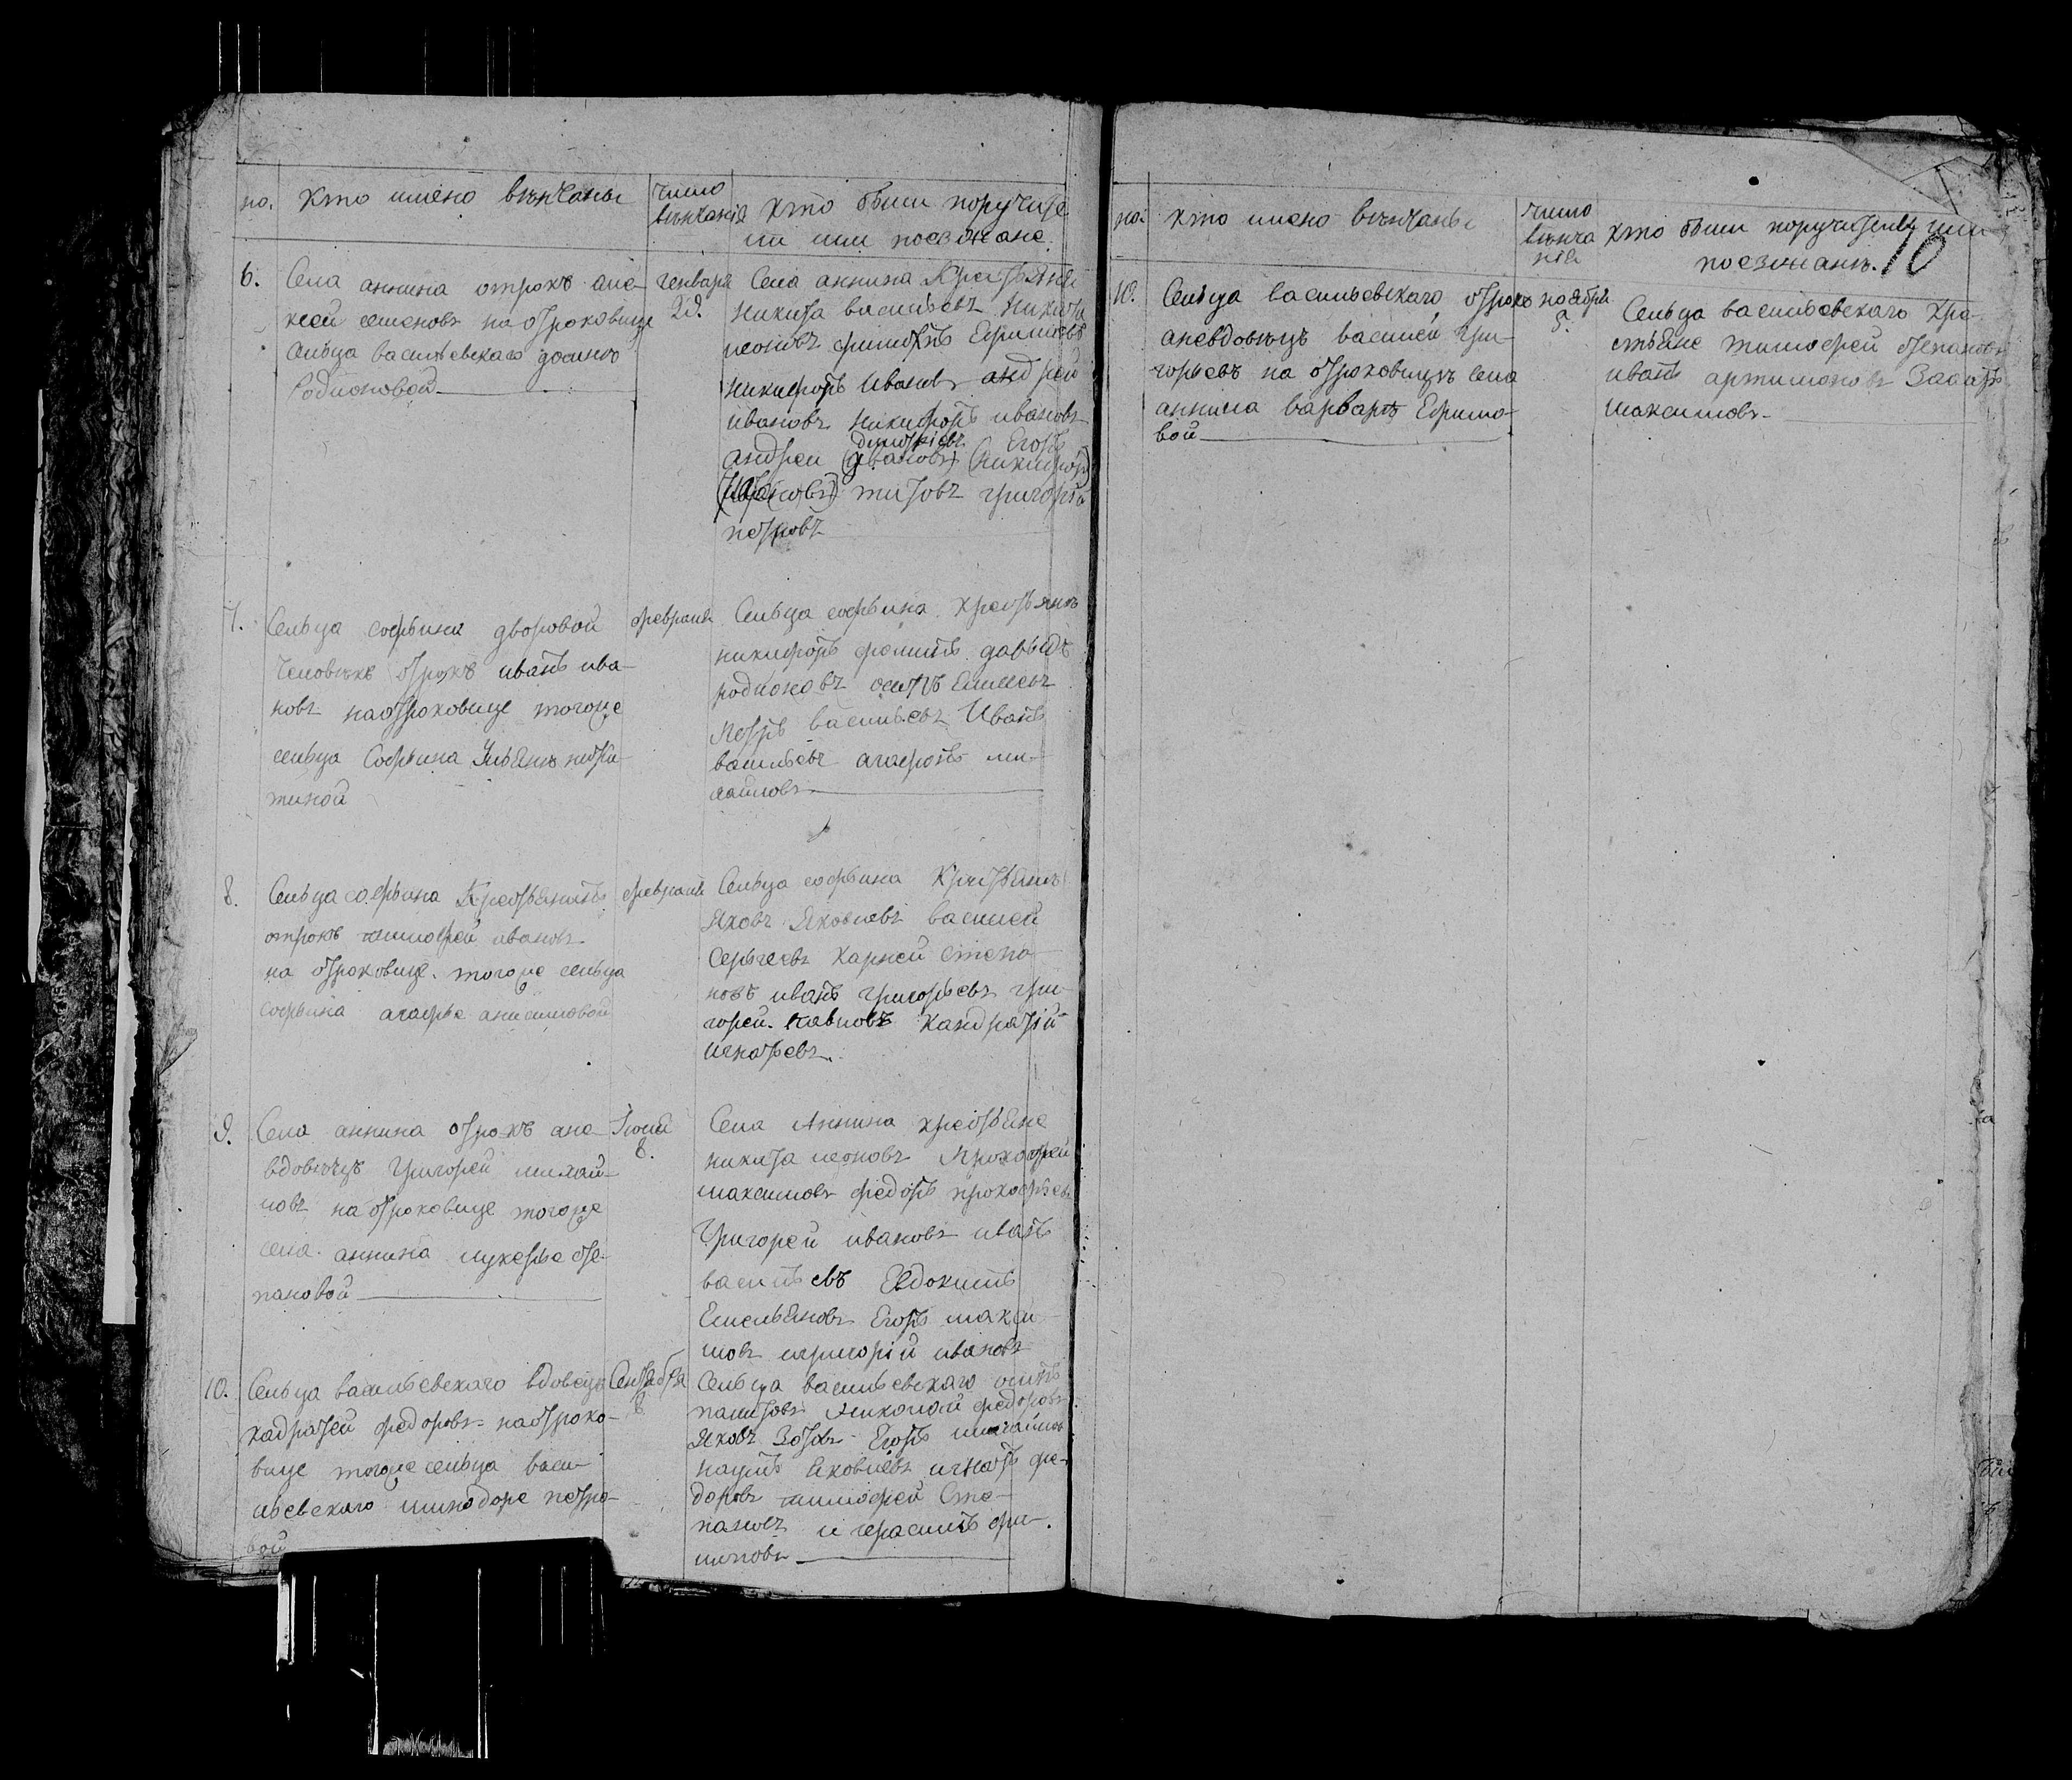 no.
кто имено венчаны
число
венчания
кто были поручите
ли или поезжане.
6.
Села аннина отрокъ але-
ксеи семеновъ на отроковице
сельца василевскаго
Родионовой
генваря
Села аннина
никита васильевъ никита
леоновъ Ефимовъ
никифоръ Ивановъ андрей
ивановъ никифоръ ивановъ
дмитріевъ Егоръ
андреи (ивановъ) (никифоръ)
(ивановъ) титовъ григорій
петровъ
7.
Сельца софьина дворовой
человекъ отрокъ иванъ ива-
новъ на отроковице тогоже
сельца Софьина
тиной
февраля
Сельца софьина крестьянъ
никифоръ давыдъ
родионовъ осипъ
Петръ васильевъ Иванъ
васильевъ агафонъ ми-
хайловъ
8.
Сельца софьина Крестьянинъ
отрокъ тимофей ивановъ
на отроковице тогоже сельца
софьина агафье анисимовой
февраля
Сельца софьина Крестьянъ
Яковъ Яковлевъ василей
Сергеевъ Карней степа-
новъ иванъ григорьевъ гри-
горей павловъ Кандратій
игнатьевъ.
9.
Села аннина отрокъ ане-
вдовецъ Григорей михай-
ловъ на отроковице тогоже
села аннина лукерье сте-
пановой
8.
Села Аннина крестьяне
никита леоновъ Прокофей
максимовъ федоръ прокофьевъ
Григорей ивановъ иванъ
васильевъ Евдокимъ
Емельяновъ Егоръ макси-
мовъ игригорій ивановъ
10.
Сельца васильевскаго вдовецъ
кадратей федоровъ на отроко-
вице тогоже сельца васи-
льевскаго минодоре петро-
вой
Сентября
8
Сельца васильевскаго осипъ
николай федоровъ
Яковъ Зотовъ Егоръ михайловъ
наумъ Яковлевъ игнатъ фе-
доровъ тимофей Сте-
пановъ и герасимъ фи-
липовъ
no.
кто имено венчаны
число
венча
ния
кто были поручители или
поезжанъ.
10
10.
Сельца васильевскаго отрокъ
аневдовецъ василей гри-
горьевъ на отроковицъ села
аннина варваре Ефимо-
вой
ноября
5.
Сельца васильевскаго кре-
стьяне тимофей степановъ
иванъ артимоновъ
максимовъ